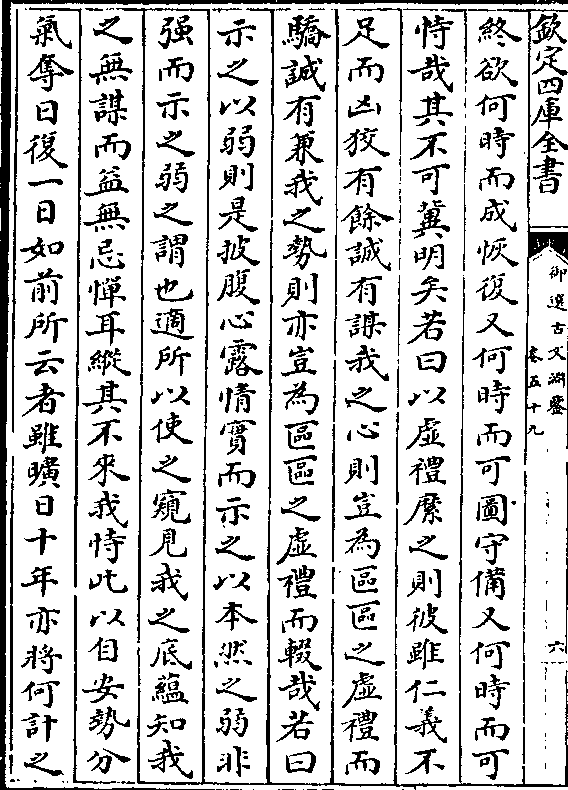 欽定四庫全書
御選古文淵鑒
卷五十九
六
終欲何時而成恢復又何時而可圖守備又何時而可
恃哉其不可冀明矣若曰以虛禮縻之則彼雖仁義不
足而凶狡有餘誠有謀我之心則豈為區區之虛禮而
驕誠有兼我之勢則亦豈為區區之虛禮而輟哉若曰
示之以弱則是披腹心露情實而示之以本然之弱非
强而示之弱之謂也適所以使之窺見我之底蘊知我
之無謀而益無忌憚耳縱其不來我恃此以自安勢分
氣奪日復一日如前所云者雖曠日十年亦將何計之